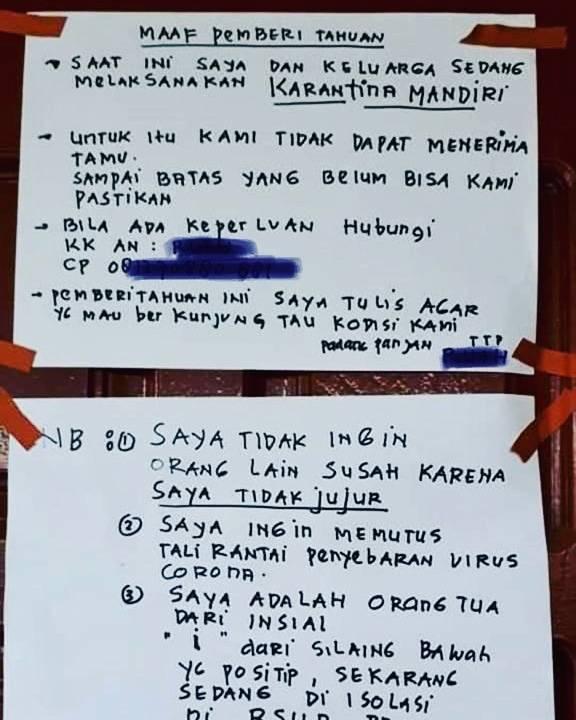 MAAF PEMBERI TAHUAN
SAAT INI SAYA DAN KELUARGA SEDANG
MELAKSANAKAN KARANTINA MANDIRI
UNTUK ITU KAMI TIDAK DAPAT MENERIMA
TAMU.
SAMPAI BATAS YANG BELUM BISA KAMI
PASTIKAN
BILA ADA KEPERLUAN HUBUNGI
KK AN :
CP
PEMBERITAHUAN INI SAYA TULIS AGAR
YG MAU BERKUNJUNG TAU KODISI KAMI
PADANG PANJAN TTP
NB : ① SAYA TIDAK INGIN
ORANG LAIN SUSAH KARENA
SAYA TIDAK JUJUR
② SAYA INGIN MEMUTUS
TALI RANTAI PENYEBARAN VIRUS
CORONA.
③ SAYA ADALAH ORANG TUA
DARI INSIAL
"i" DARI SILAING BAWAH
YG POSITIP, SEKARANG
SEDANG DI ISOLASI
DI RSUD